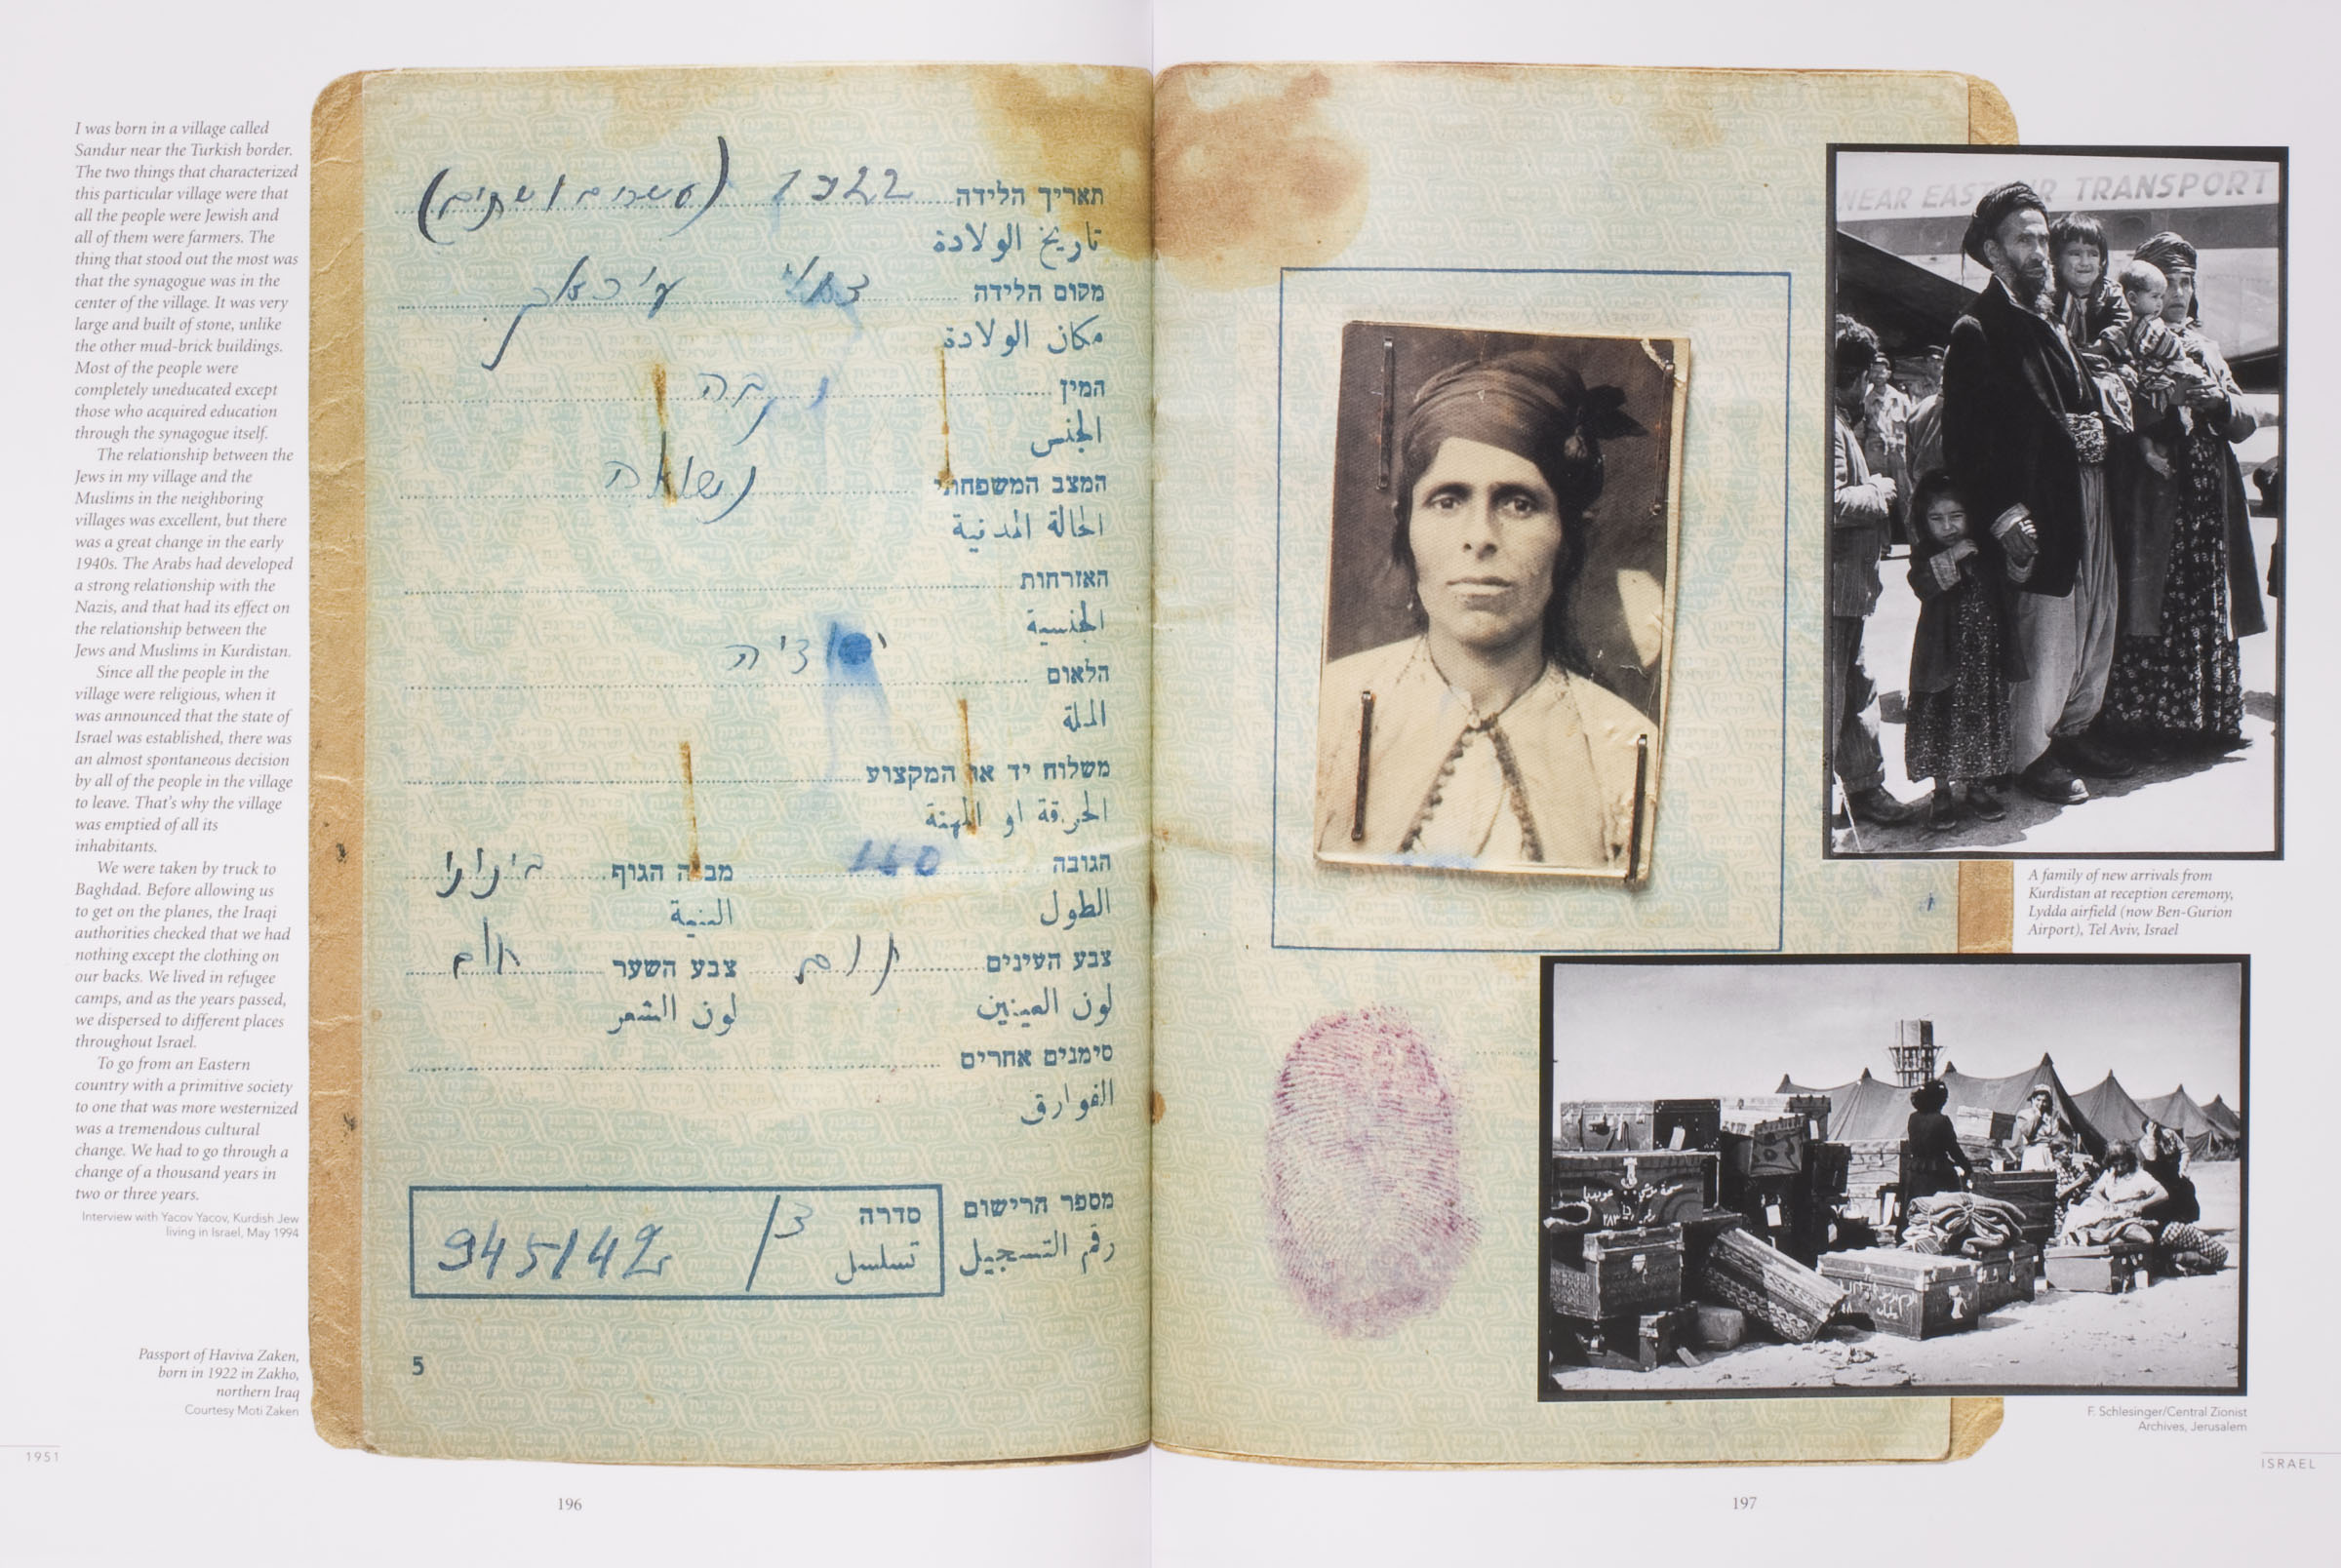 I was born in a village called
Sandur near the Turkish border.
The two things that characterized
this particular village were that
all the people were Jewish and
all of them were farmers. The
thing that stood out the most was
that the synagogue was in the
center of the village. It was very
large and built of stone, unlike
the other mud-brick buildings.
Most of the people were
completely uneducated except
those who acquired education
through the synagogue itself.
The relationship between the
Jews in my village and the
Muslims in the neighboring
villages was excellent, but there
was a great change in the early
1940s. The Arabs had developed
a strong relationship with the
Nazis, and that had its effect on
the relationship between the
Jews and Muslims in Kurdistan.
Since all the people in the
village were religious, when it
was announced that the state of
Israel was established, there was
an almost spontaneous decision
by all of the people in the village
to leave. That's why the village
was emptied of all its
inhabitants.
We were taken by truck to
Baghdad. Before allowing us
to get on the planes, the Iraqi
authorities checked that we had
nothing except the clothing on
our backs. We lived in refugee
camps, and as the years passed,
we dispersed to different places
throughout Israel.
To go from an Eastern
country with a primitive society
to one that was more westernized
was a tremendous cultural
change. We had to go through a
change of a thousand years in
two or three years.
Interview with Yacov Yacov, Kurdish Jew
living in Israel, May 1994
Passport of Haviva Zaken,
born in 1922 in Zakho,
northern Iraq
Courtesy Moti Zaken
1951
תאריך הלידה 1922 (עשרים ושתים)
تاريخ الولادة
מקום הלידה
مكان الولادة
המין נקבה
الجنس
המצב המשפחתי נשואה
الحالة المدنية
האזרחות
الجنسية
הלאום
الملة
משלוח יד או המקצוע
الحرفة او المهنة
הגובה 140 מבנה הגוף בינוני
الطول البنية
צבע העינים חום צבע השער חום
لون العينين لون الشعر
סימנים אחרים
الفوارق
מספר הרישום סדרה 3/ 945142
رقم التسجيل تسلسل
5
196
NEAR EAST AIR TRANSPORT
A family of new arrivals from
Kurdistan at reception ceremony,
Lydda airfield (now Ben-Gurion
Airport), Tel Aviv, Israel
F. Schlesinger/Central Zionist
Archives, Jerusalem
ISRAEL
197